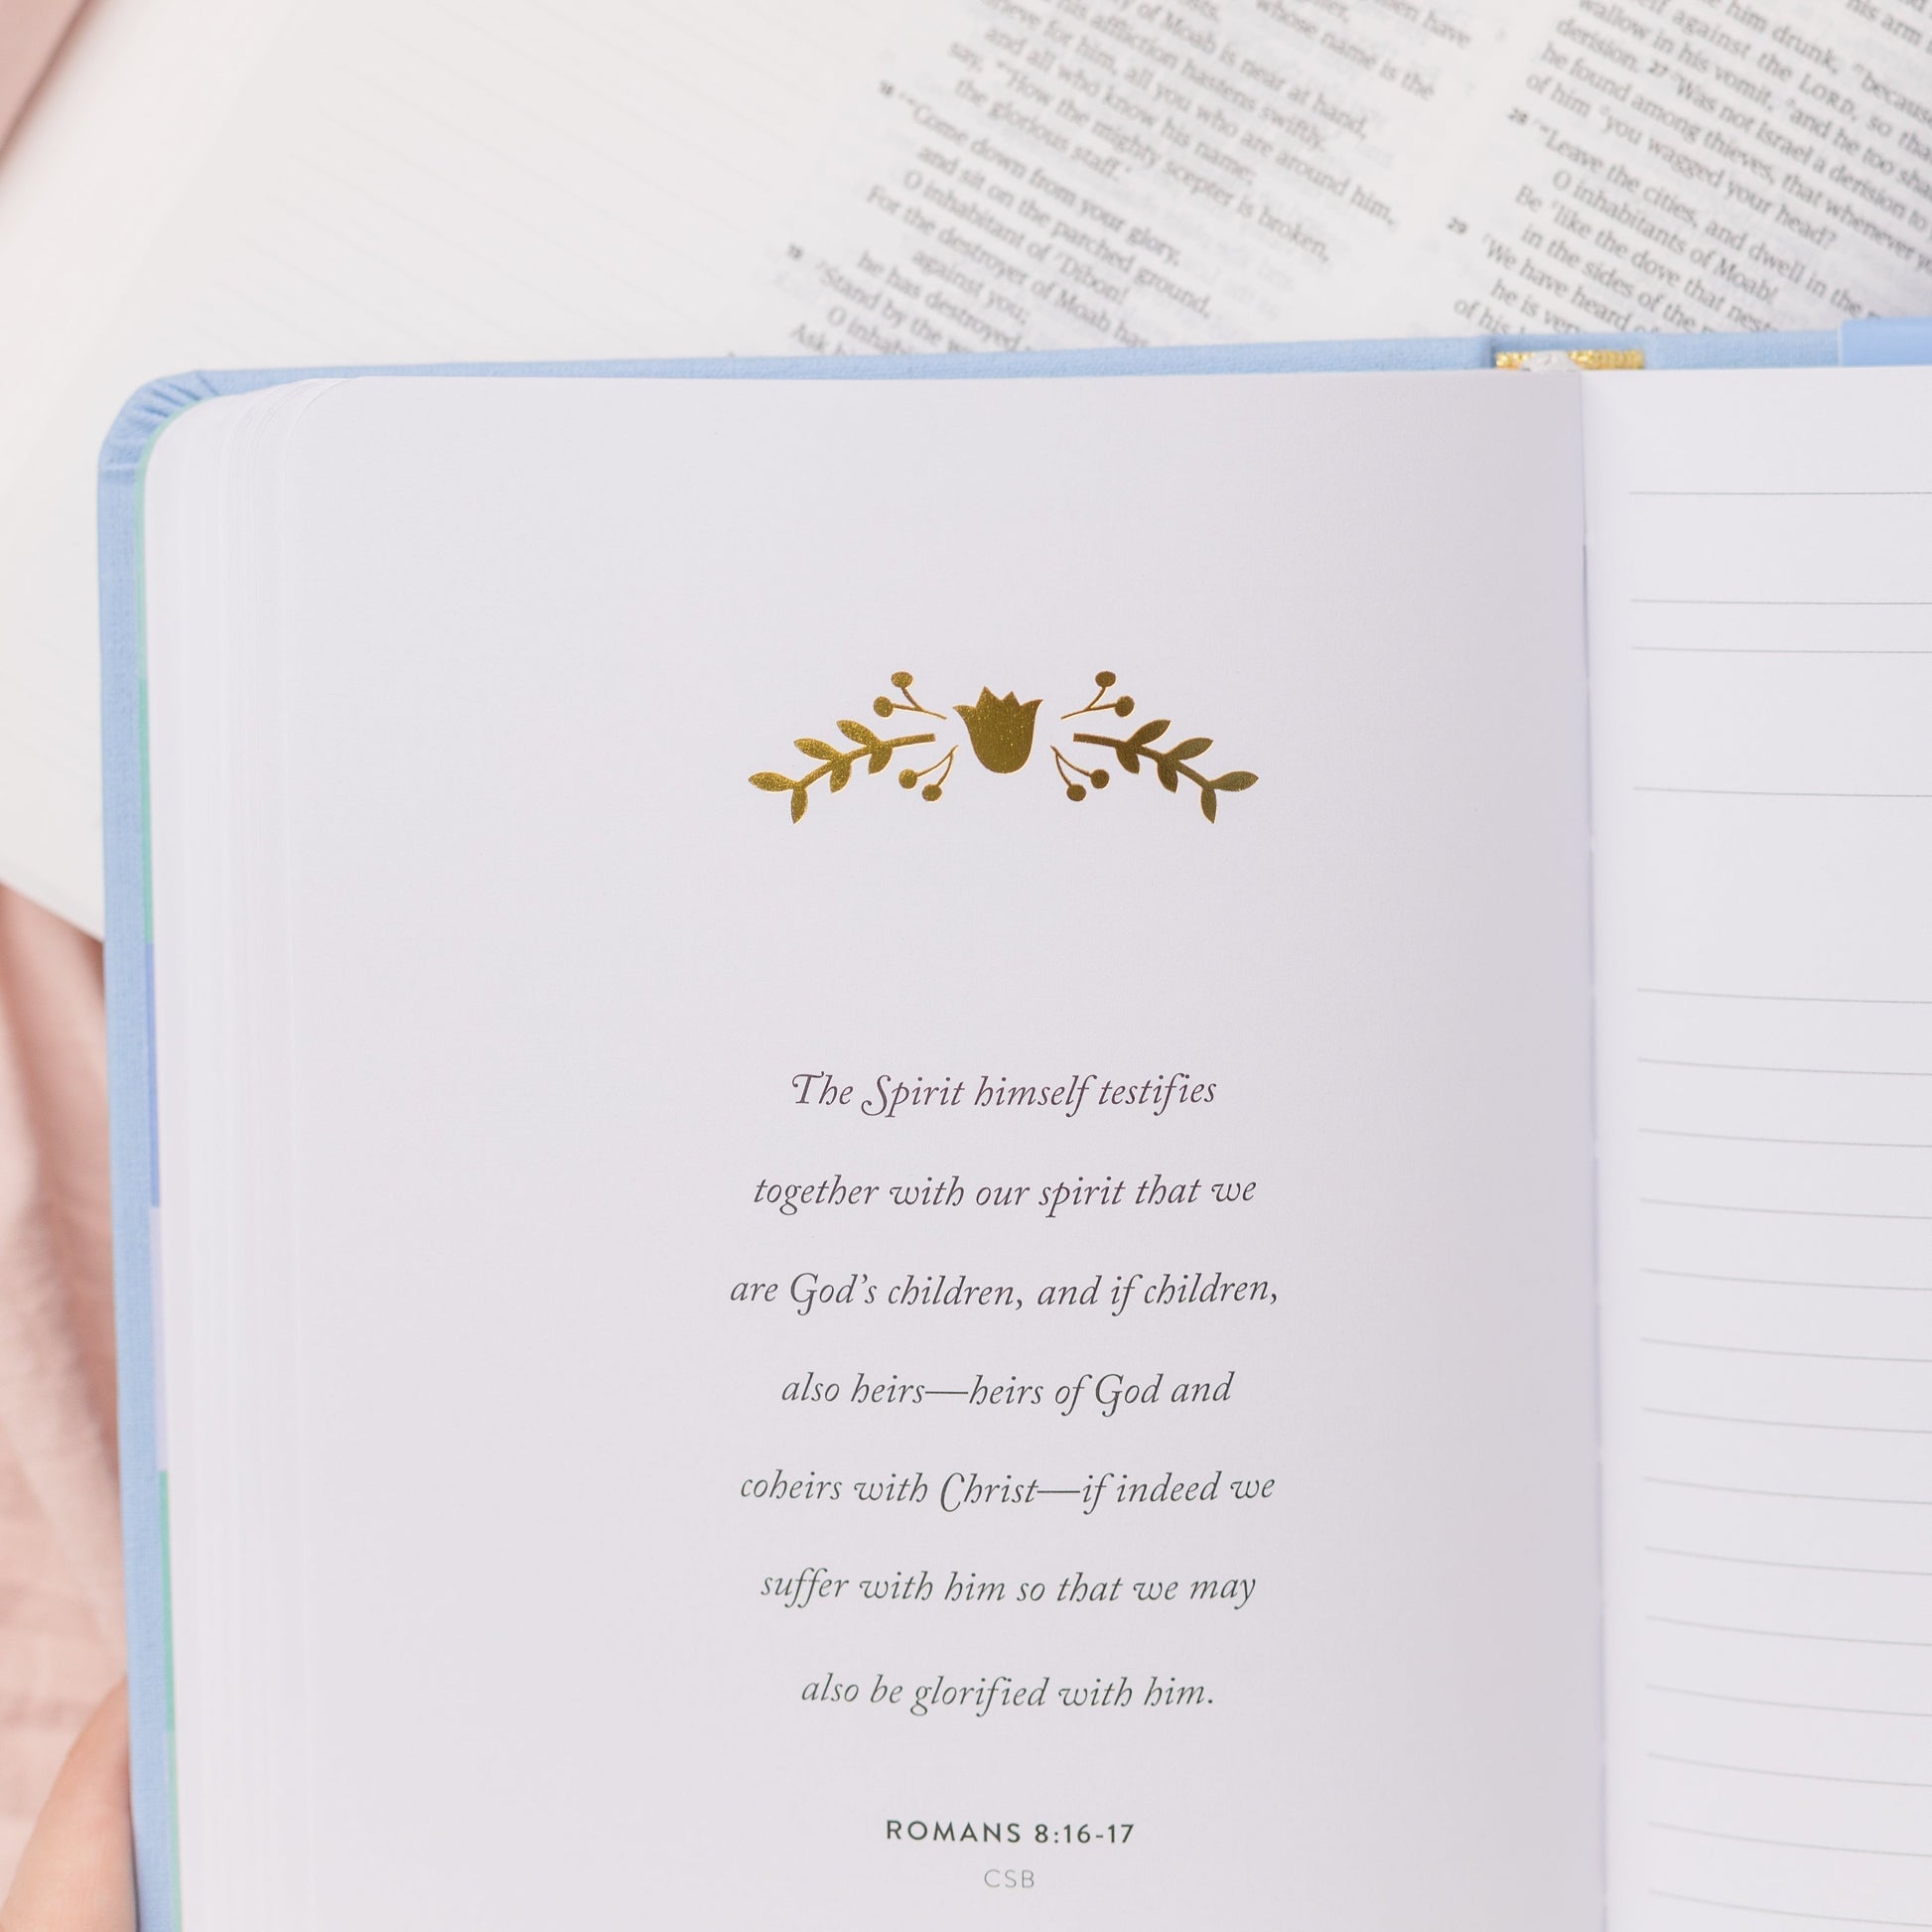 whose name is the
y of Moab is near at hand,
his affliction hastens swiftly.
ieve for him, all you who are around him,
and all who know his name;
say, "How the mighty scepter is broken,
the glorious staff.'
18 "Come down from your glory,
and sit on the parched ground,
O inhabitant of Dibon!
For the destroyer of Moab has
against you;
he has destroyed
19 Stand by the
O inhabi
Ask
his arm
him drunk, because
against the LORD, so tha
wallow in his vomit, and he too sha
derision. 27 Was not Israel a derision to
he found among thieves, that whenever
of him you wagged your head?
28 "Leave the cities, and dwell in the
O inhabitants of Moab!
Be like the dove that nest
in the sides of the
29 We have heard
he is ver
of his
The Spirit himself testifies
together with our spirit that we
are God's children, and if children,
also heirs—heirs of God and
coheirs with Christ—if indeed we
suffer with him so that we may
also be glorified with him.
ROMANS 8:16-17
CSB